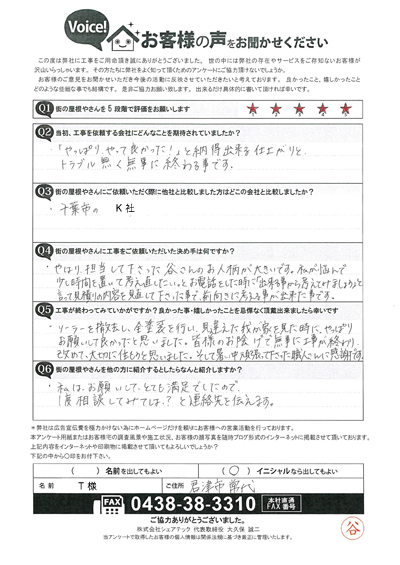 Voice!
お客様の声をお聞かせください
この度は弊社に工事をご用命頂き誠にありがとうございました。世の中には弊社の存在やサービスをご存知ないお客様が
沢山いらっしゃいます。その方たちに弊社をよく知って頂くためのアンケートにご協力頂けないでしょうか。
お客様のご意見をお聞かせいただき今後の活動に反映させていただきたいと考えております。良かったこと、嬉しかったこと
どのような些細な事でも結構です。是非ご協力お願い致します。出来るだけ具体的に書いて頂ければ幸いです。
Q1 街の屋根やさんを5段階で評価をお願いします ★ ★ ★ ★ ★
Q2 当初、工事を依頼する会社にどんなことを期待されていましたか?
・「やっぱり、やって良かった!」と納得出来る仕上がりと、
トラブル無く無事に終わる事です。
Q3 街の屋根やさんにご依頼いただく際に他社と比較しました方はどこの会社と比較しましたか?
・千葉市の K社
Q4 街の屋根やさんに工事をご依頼いただいた決め手は何ですか?
・やはり、担当して下さった谷さんのお人柄が大きいです。私が悩んで
少し時間を置いて考え直したい。とお電話をした時に「出来る事から考えてみましょう。」と
言って見積りの内容を見直して下さった事で、前向きに考える事が出来た事です。
Q5 工事が終わってみていかがですか?良かった事・嬉しかったことを忌憚なく頂戴出来ましたら幸いです
・ソーラーを撤去し、全塗装を行い、見違えた我が家を見た時に、やっぱり
お願いして良かったと思いました。皆様のお陰で無事に工事が終わり、
改めて、大切に住もうと思いました。そして暑い中頑張って下さった職人さんに感謝です。
Q6 街の屋根やさんを他の方に紹介するとしたらなんと紹介しますか?
・私は、お願いして、とても満足でしたので、
「1度相談してみては?」と連絡先を伝えます。
＊弊社は広告宣伝費を極力かけない為にホームページだけを頼りにお客様からお問い合わせをお受けしております。
本アンケート用紙またはお客様宅の調査風景や施工状況、お客様の顔写真を随時ブログ形式のインターネットに掲載させて頂いております。
上記内容をインターネットや印刷物に掲載させて頂いてもよろしいでしょうか?
下記の中から〇印をお付け下さい。
( ) 名前を出してもよい ( ○ ) イニシャルなら出してもよい
名前 T様 ご住所 君津市常代
FAX 0438-38-3310 本社直通 FAX番号
ご協力ありがとうございました。
株式会社シェアテック 代表取締役 大久保 誠二
当アンケートで取得したお客様の個人情報は関係法規に基づき厳正に管理いたします。
谷